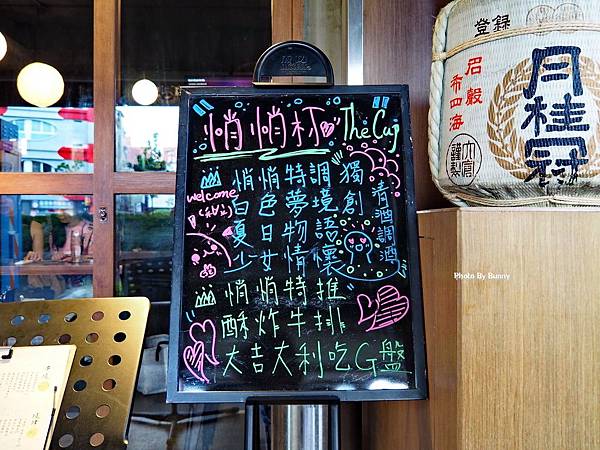 悄悄杯 The Cup
悄悄特調
白色夢境
夏日物語
少女情懷
獨創
清酒調酒
welcome
悄悄特推
酥炸牛排
大吉大利吃G盤
登録
月桂冠
Photo By Bunny